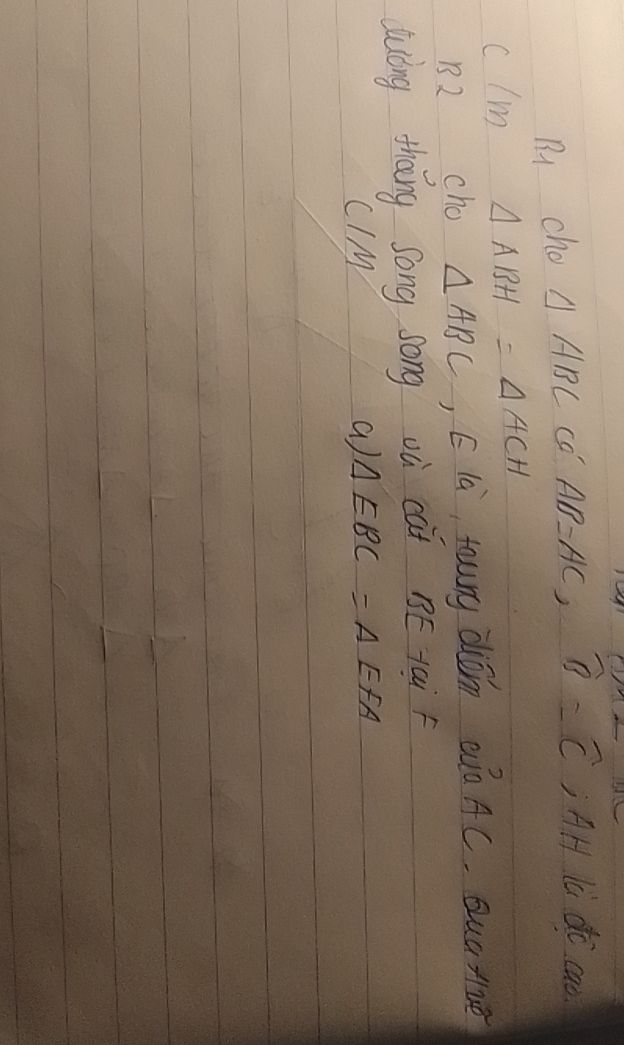 B1 cho Δ ABC có AB=AC, B̂ = Ĉ; AH là độ cao.
C/m Δ ABH = Δ ACH
B2 cho Δ ABC, E là trung điểm của AC. Qua A vẽ
đường thẳng song song và cắt BE tại F
C/M a) Δ EBC = Δ EFA